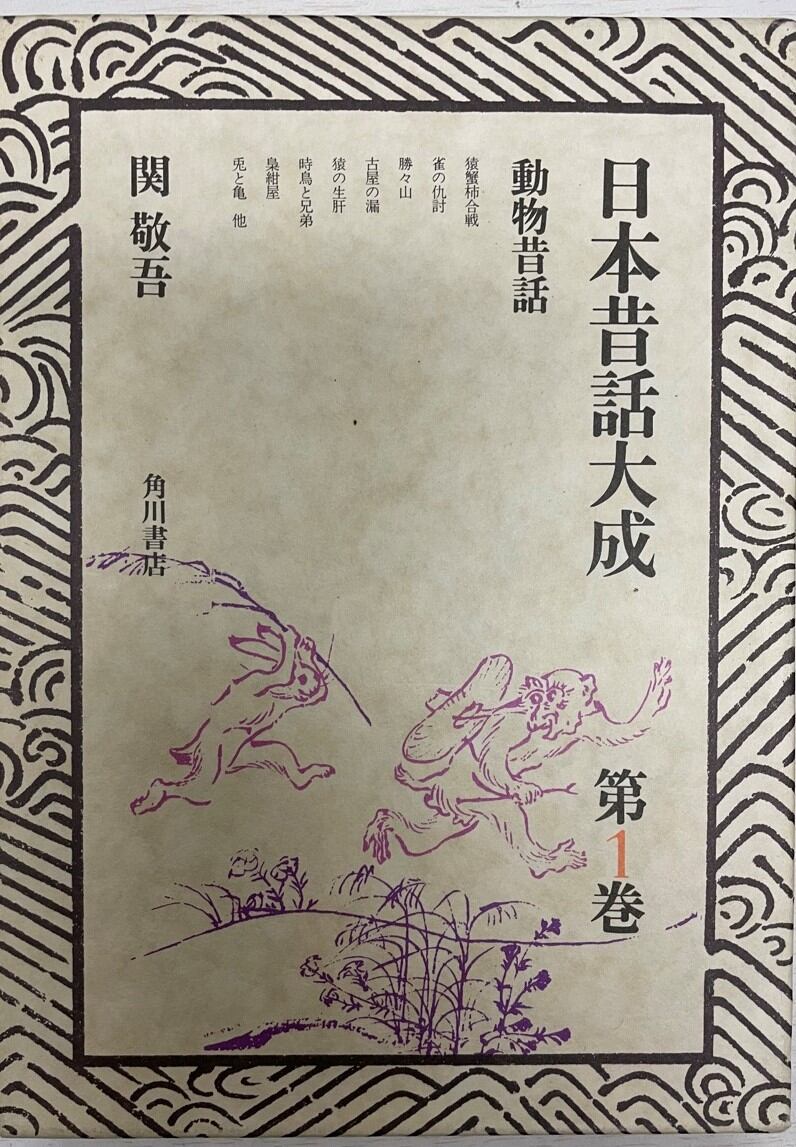 日本昔話大成 第1巻
動物昔話
猿蟹柿合戦
雀の仇討
勝々山
古屋の漏
猿の生肝
時鳥と兄弟
梟紺屋
兎と亀 他
関 敬吾
角川書店